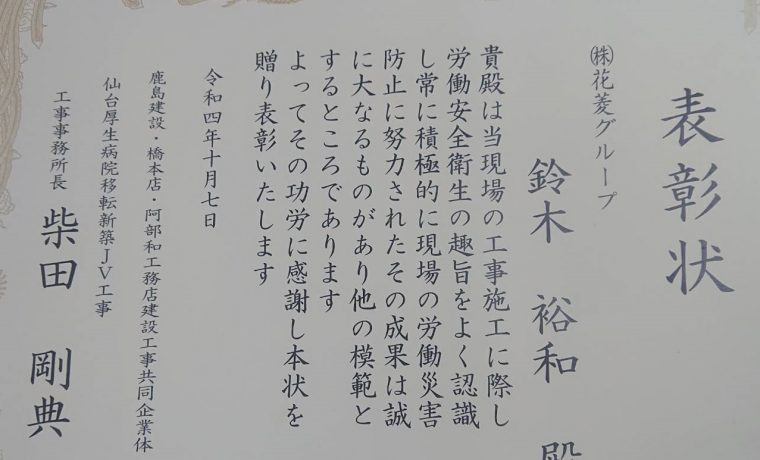 表彰状
㈱花菱グループ
鈴木 裕和 殿
貴殿は当現場の工事施工に際し
労働安全衛生の趣旨をよく認識
し常に積極的に現場の労働災害
防止に努力されたその成果は誠
に大なるものがあり他の模範と
するところであります
よってその功労に感謝し本状を
贈り表彰いたします
令和四年十月七日
鹿島建設・橋本店・阿部和工務店建設工事共同企業体
仙台厚生病院移転新築JV工事
工事事務所長 柴田 剛典